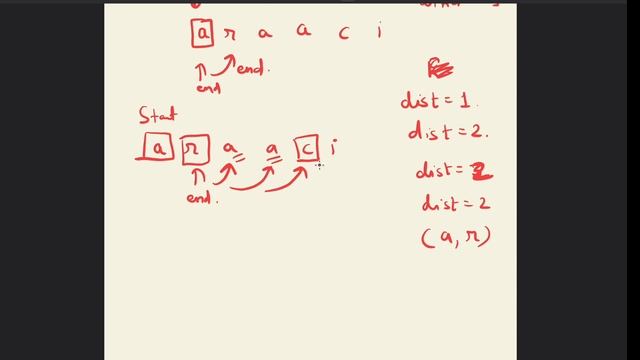 a r a a c i
end.
end
dist = 1.
Start
dist = 2.
a r a a c i
dist = 2
end.
dist = 2
(a, r)